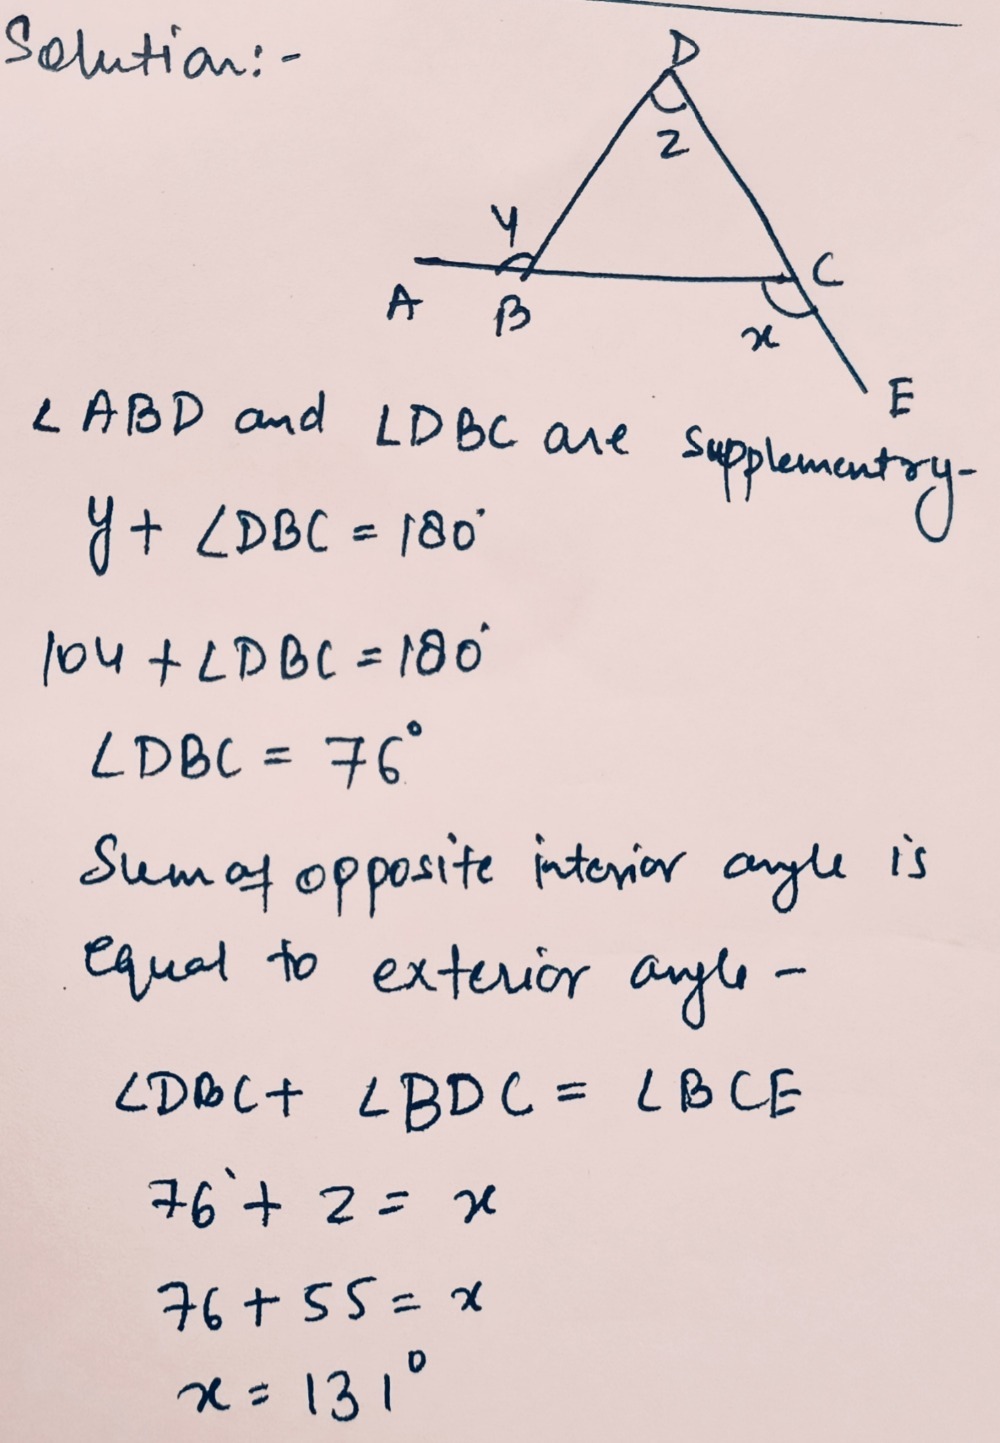 Solution:-
D
z
y
A
B
C
x
E
∠ABD and ∠DBC are supplementry-
y + ∠DBC = 180°
104 + ∠DBC = 180°
∠DBC = 76°
Sum of opposite interior angle is
equal to exterior angle -
∠DBC + ∠BDC = ∠BCE
76° + z = x
76 + 55 = x
x = 131°